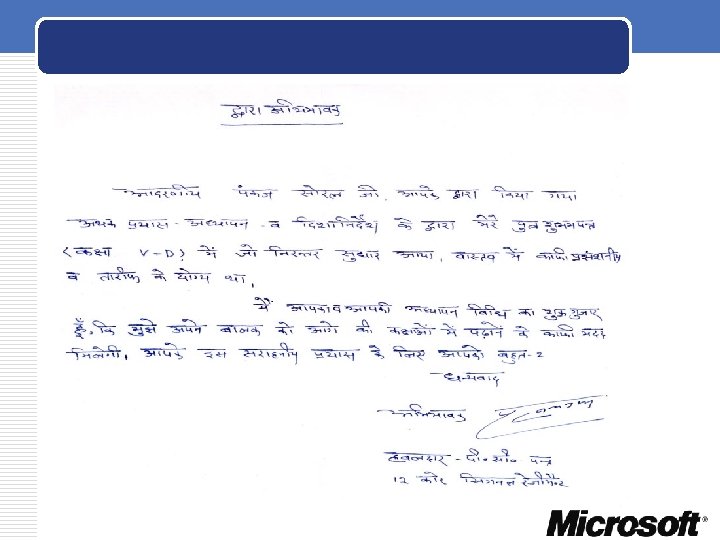 द्वारा अभिभावक
आदरणीय पंकज जी, आपके द्वारा किया गया
अथक प्रयास - अध्यापन - व दिशानिर्देश के द्वारा मेरे पुत्र शुभम पन्त
(कक्षा V-D) में जो निरन्तर सुधार आया, वास्तव में काफी प्रशंसनीय
व तारीफ के योग्य था,
मैं आपका व आपकी अध्यापन विधि का
हूँ, कि मुझे अपने बालक को आगे की कक्षाओं में पढ़ाने में काफी मदद
मिलेगी, आपके इस सराहनीय प्रयास के लिए आपको बहुत-2
धन्यवाद
अभिभावक
हवलदार - पी॰ सी॰ पन्त
12 कोर सिगनल रेजीमेंट
Microsoft®